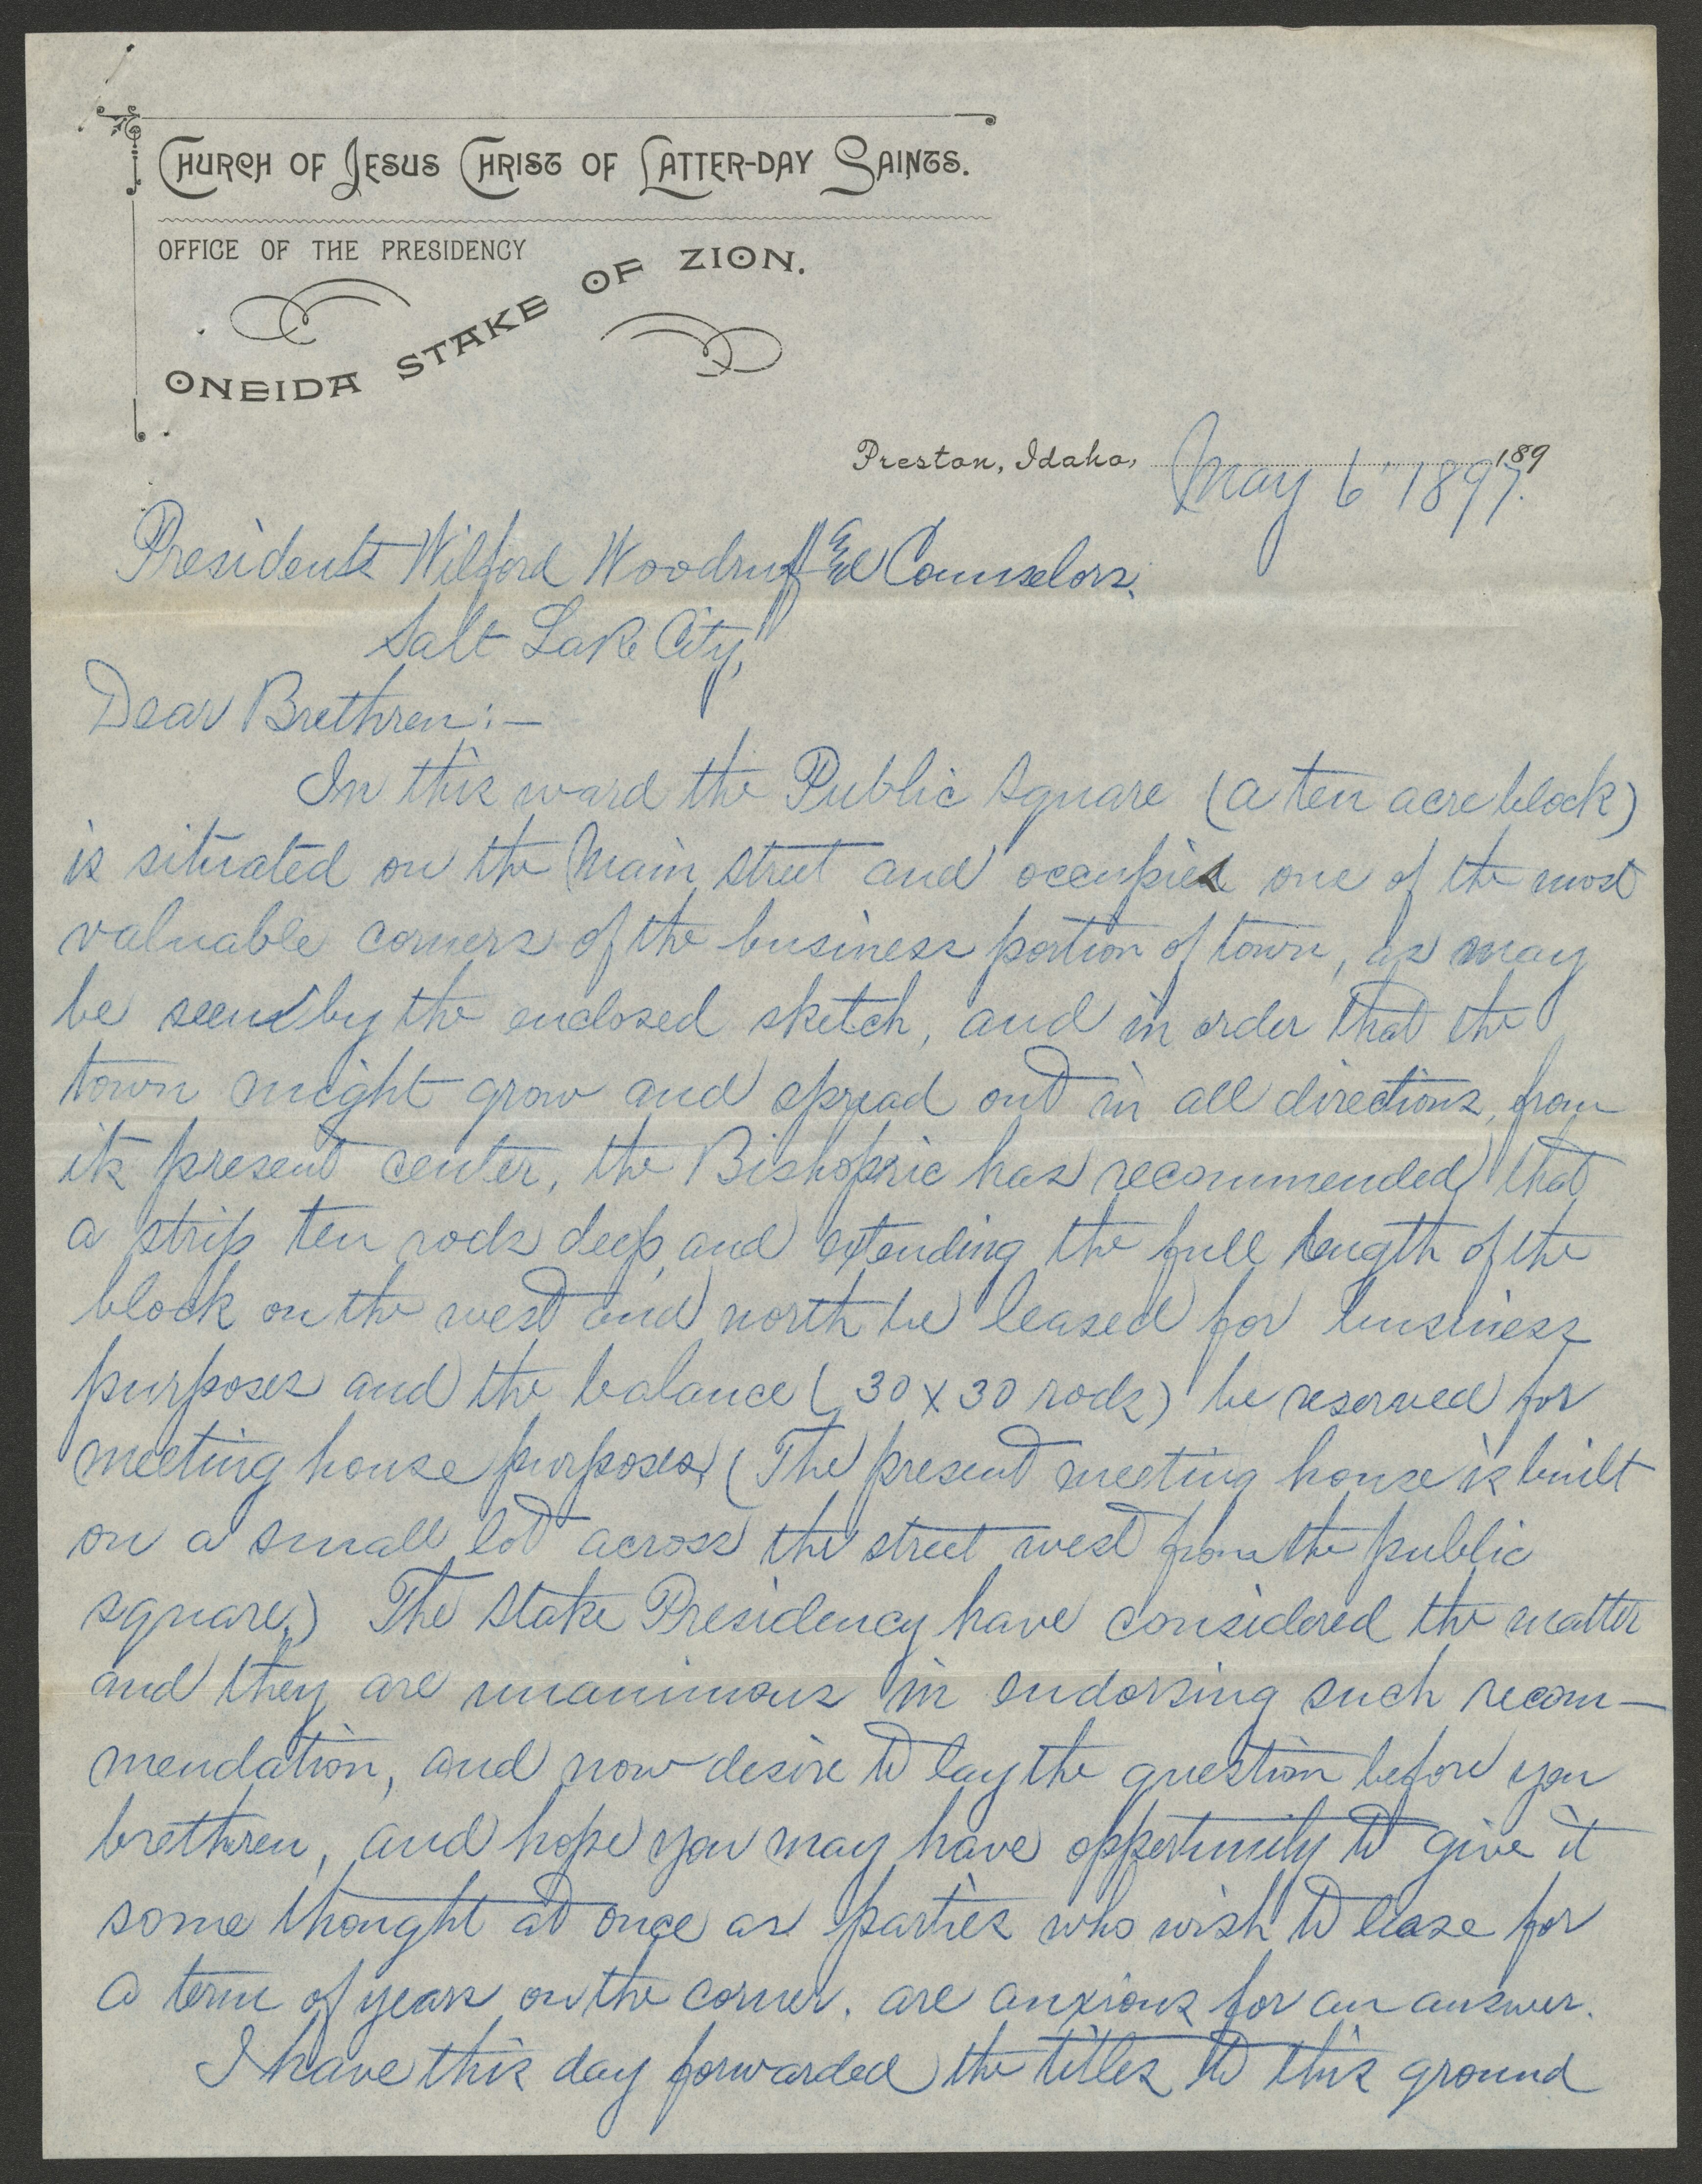 CHURCH OF JESUS CHRIST OF LATTER-DAY SAINTS.
OFFICE OF THE PRESIDENCY
ONEIDA STAKE OF ZION.
Preston, Idaho, May 6" 1897. 189
Presidents Wilford Woodruff & Counselors.
Salt Lake City,
Dear Brethren:—
In this ward the Public Square (a ten acre block)
is situated on the Main street and occupies one of the most
valuable corners of the business portion of town, as may
be seen by the enclosed sketch, and in order that the
town might grow and spread out in all directions, from
its present center, the Bishopric has recommended that
a strip ten rods deep, and extending the full length of the
block on the west and north be leased for business
purposes and the balance (30 x 30 rods) be reserved for
meeting house purposes, (The present meeting house is built
on a small lot across the street west from the public
square.) The Stake Presidency have considered the matter
and they are unanimous in endorsing such recom-
mendation, and now desire to lay the question before you
brethren, and hope you may have opportunity to give it
some thought at once as parties who wish to lease for
a term of years on the corner. are anxious for an answer.
I have this day forwarded the titles to this ground